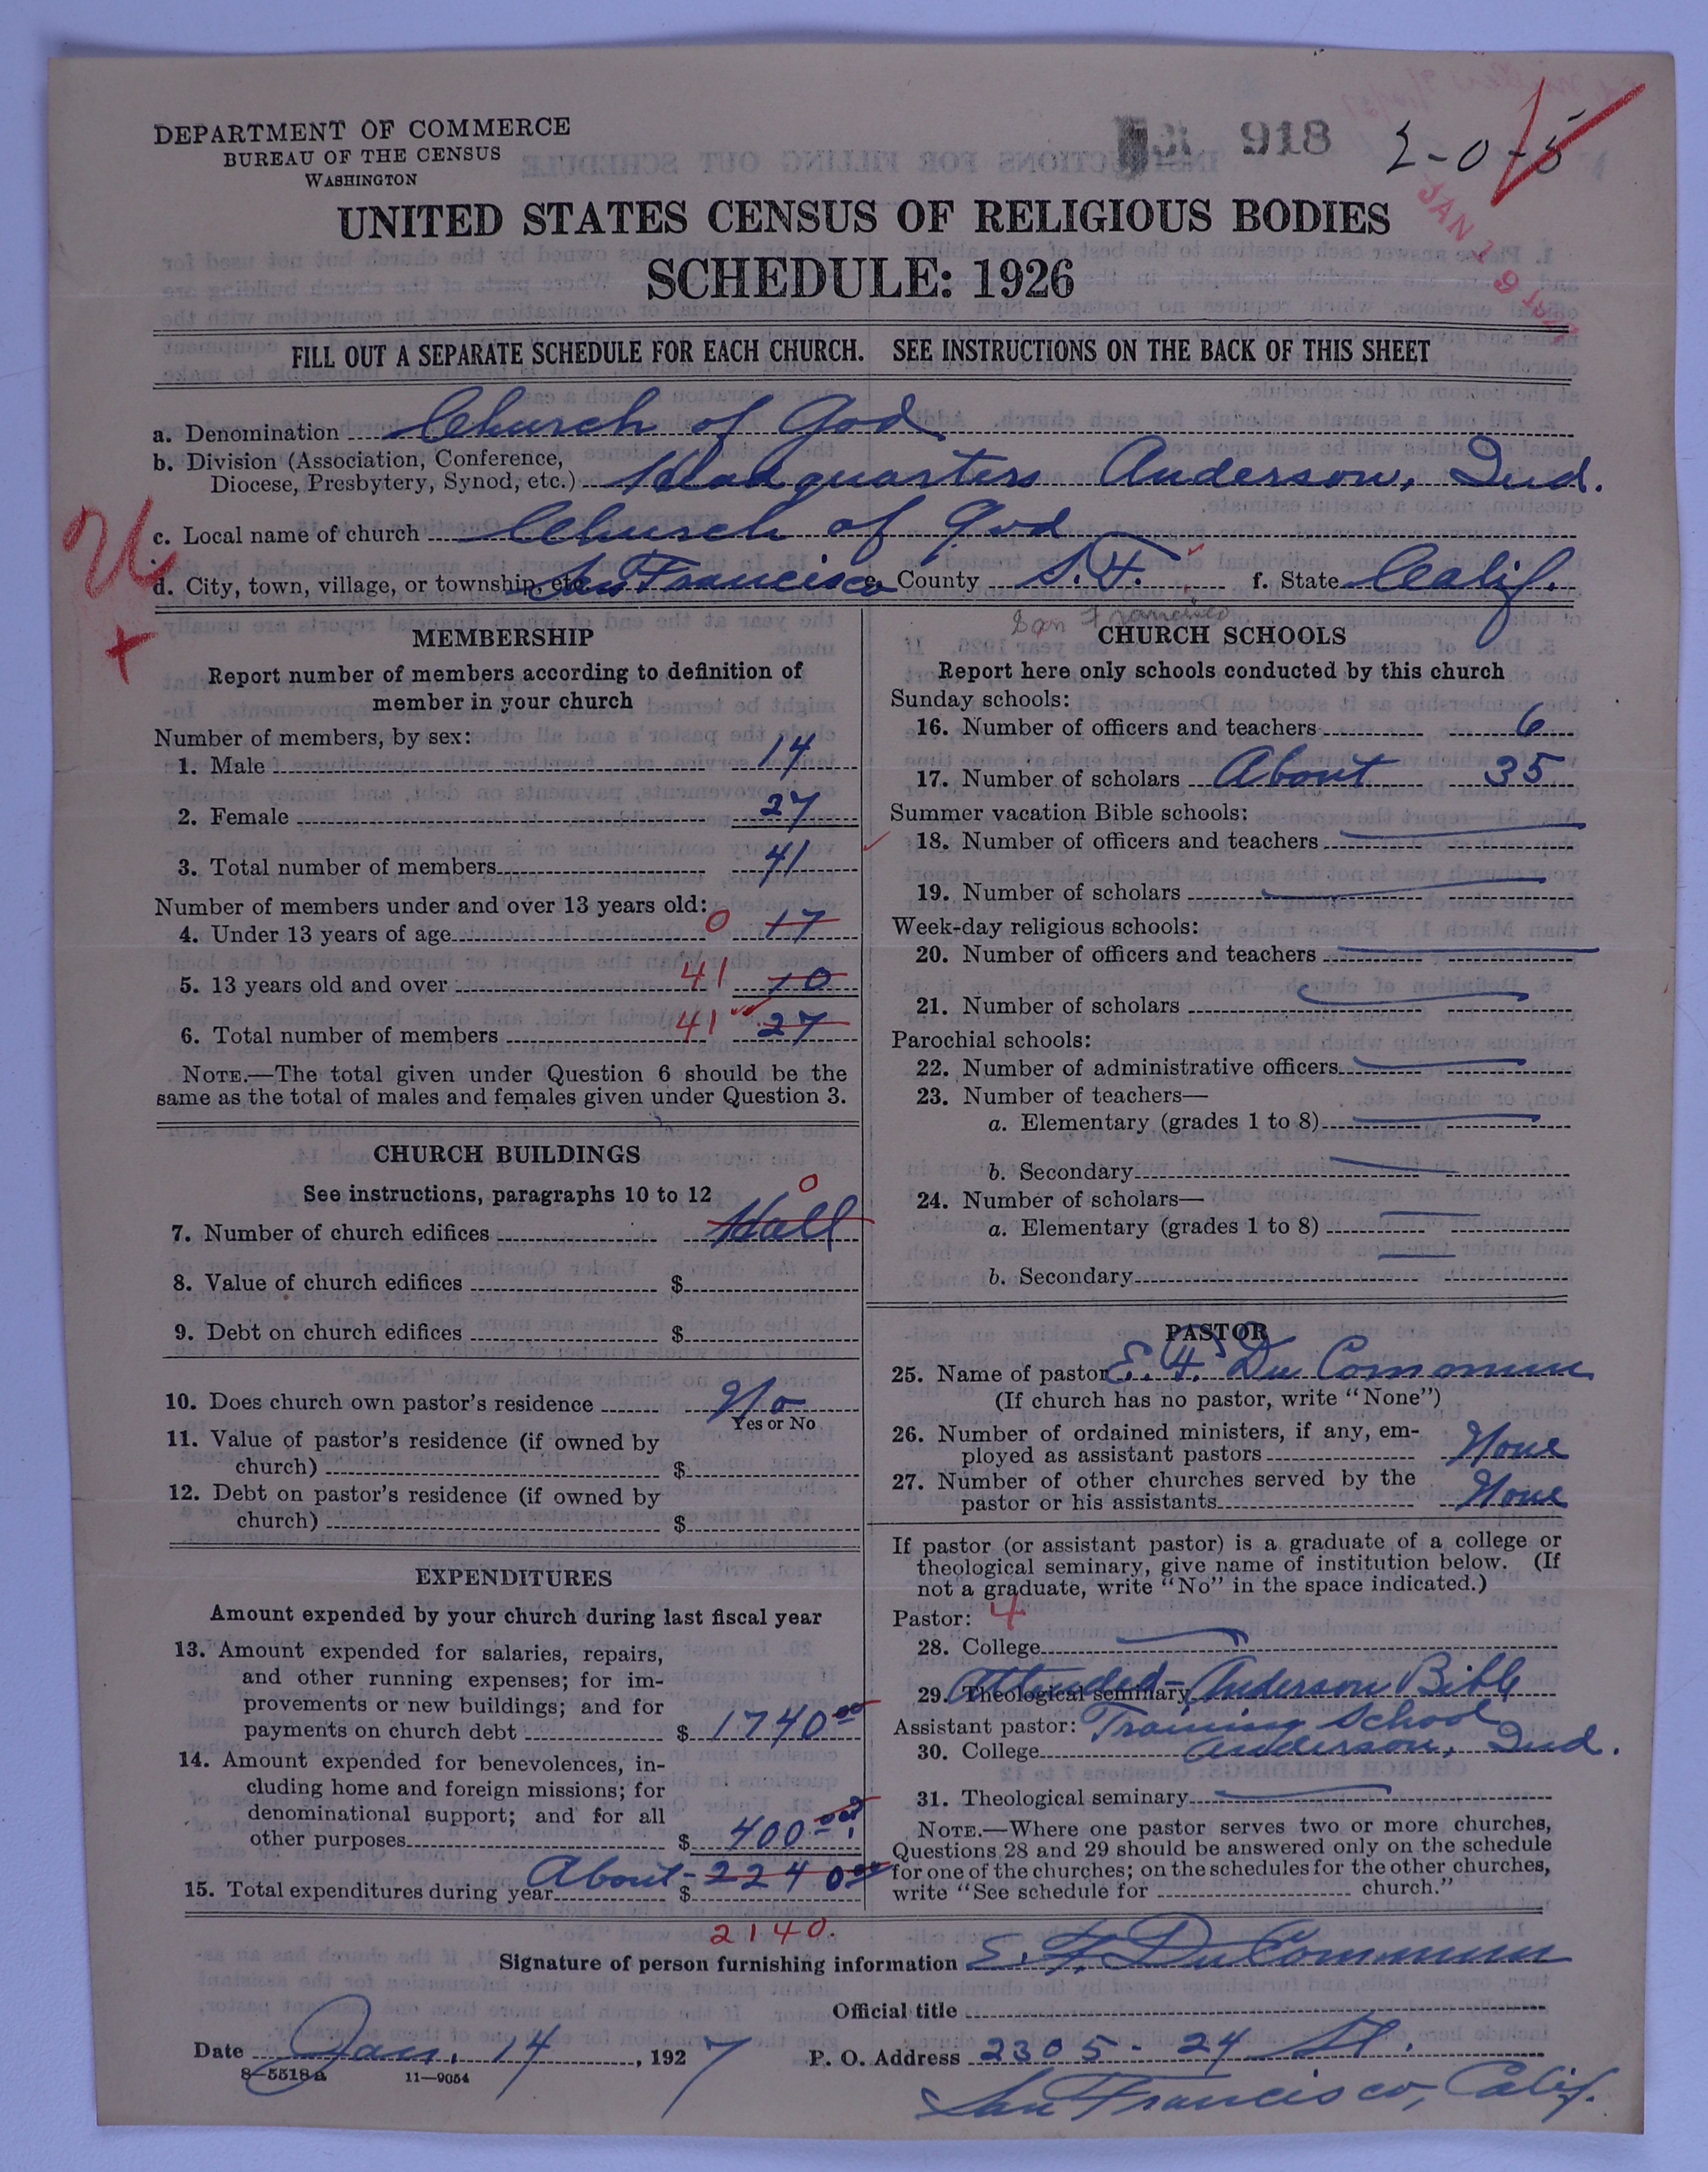 DEPARTMENT OF COMMERCE
BUREAU OF THE CENSUS
WASHINGTON
918
2-0-5
JAN 1 9
UNITED STATES CENSUS OF RELIGIOUS BODIES
SCHEDULE: 1926
FILL OUT A SEPARATE SCHEDULE FOR EACH CHURCH. SEE INSTRUCTIONS ON THE BACK OF THIS SHEET
a. Denomination Church of God
b. Division (Association, Conference,
Diocese, Presbytery, Synod, etc.) Headquarters Anderson, Ind.
c. Local name of church Church of God
d. City, town, village, or township, etc. San Francisco e. County S.F. f. State Calif.
San Francisco
MEMBERSHIP
Report number of members according to definition of
member in your church
Number of members, by sex:
1. Male 14
2. Female 27
3. Total number of members 41
Number of members under and over 13 years old:
4. Under 13 years of age 0 17
5. 13 years old and over 41 10
6. Total number of members 41 27
NOTE.—The total given under Question 6 should be the
same as the total of males and females given under Question 3.
CHURCH BUILDINGS
See instructions, paragraphs 10 to 12 0
7. Number of church edifices Hall
8. Value of church edifices $
9. Debt on church edifices $
10. Does church own pastor's residence No
Yes or No
11. Value of pastor's residence (if owned by
church) $
12. Debt on pastor's residence (if owned by
church) $
EXPENDITURES
Amount expended by your church during last fiscal year
13. Amount expended for salaries, repairs,
and other running expenses; for im-
provements or new buildings; and for
payments on church debt $ 1740 00
14. Amount expended for benevolences, in-
cluding home and foreign missions; for
denominational support; and for all
other purposes $ 400
15. Total expenditures during year About - $ 2240 00
2140.
CHURCH SCHOOLS
Report here only schools conducted by this church
Sunday schools:
16. Number of officers and teachers 6
17. Number of scholars About 35
Summer vacation Bible schools:
18. Number of officers and teachers
19. Number of scholars
Week-day religious schools:
20. Number of officers and teachers
21. Number of scholars
Parochial schools:
22. Number of administrative officers
23. Number of teachers—
a. Elementary (grades 1 to 8)
b. Secondary
24. Number of scholars—
a. Elementary (grades 1 to 8)
b. Secondary
PASTOR
25. Name of pastor E. F. Du Commun
(If church has no pastor, write "None")
26. Number of ordained ministers, if any, em-
ployed as assistant pastors None
27. Number of other churches served by the
pastor or his assistants None
If pastor (or assistant pastor) is a graduate of a college or
theological seminary, give name of institution below. (If
not a graduate, write "No" in the space indicated.)
Pastor: 4
28. College
29. Theological seminary Attended - Anderson Bible
Assistant pastor: Training School
30. College Anderson, Ind.
31. Theological seminary
NOTE.—Where one pastor serves two or more churches,
Questions 28 and 29 should be answered only on the schedule
for one of the churches; on the schedules for the other churches,
write "See schedule for church."
Signature of person furnishing information E. F. Du Commun
Official title
Date Jan. 14, 1927 P. O. Address 2305 - 24 St.
8-5518a 11-9054
San Francisco, Calif.